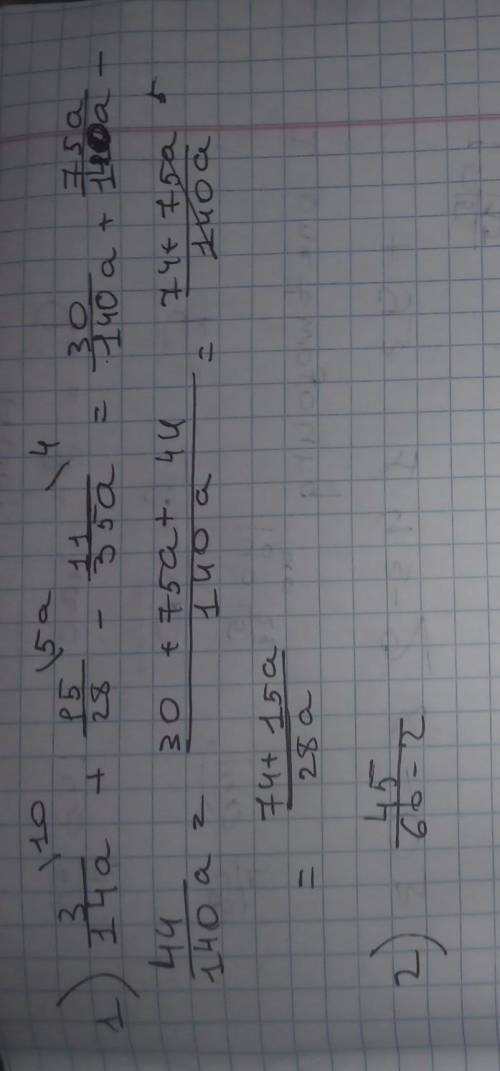 1) \frac{3}{14a}\10 + \frac{15}{28}\5a - \frac{11}{35a}\4 = \frac{30}{140a} + \frac{75a}{140a} -
\frac{44}{140a} = \frac{30 + 75a + 44}{140a} = \frac{74 + 75a}{140a}
= \frac{74 + 15a}{28a}
2) \frac{45}{60-2}